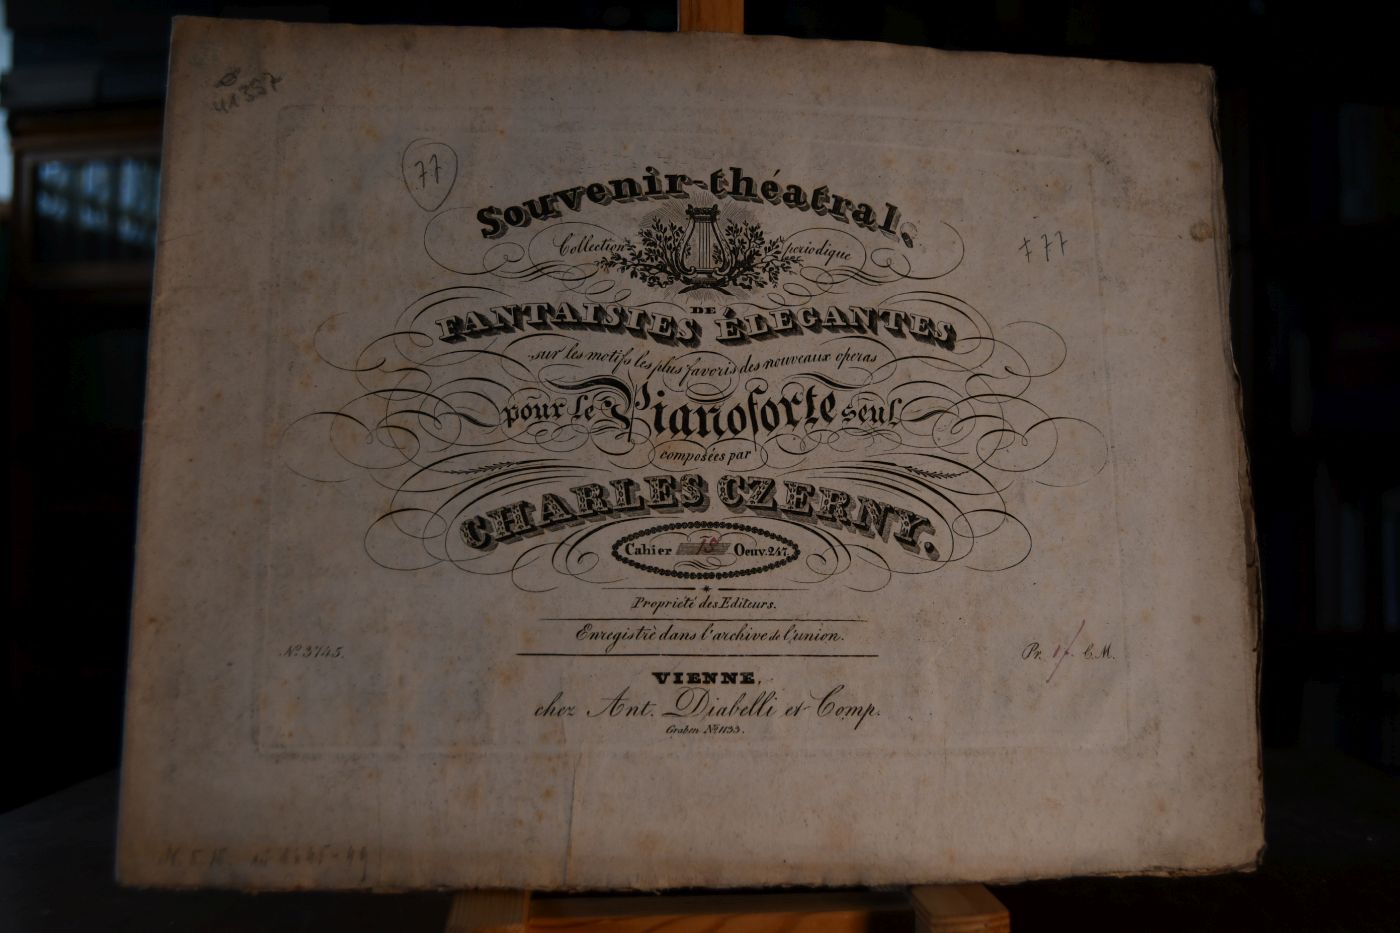 41397
77
Souvenir-théatral.
Collection periodique
777
DE
FANTAISIES ÉLEGANTES
sur les motifs les plus favoris des nouveaux operas
pour le Pianoforte seul
composées par
CHARLES CZERNY.
Cahier 19 Oeuv. 247.
Propriété des Editeurs.
Enregistrè dans l'archive de l'union.
No 3745. Pr. 1f. C.M.
VIENNE,
chez Ant. Diabelli et Comp.
Graben No 1133.